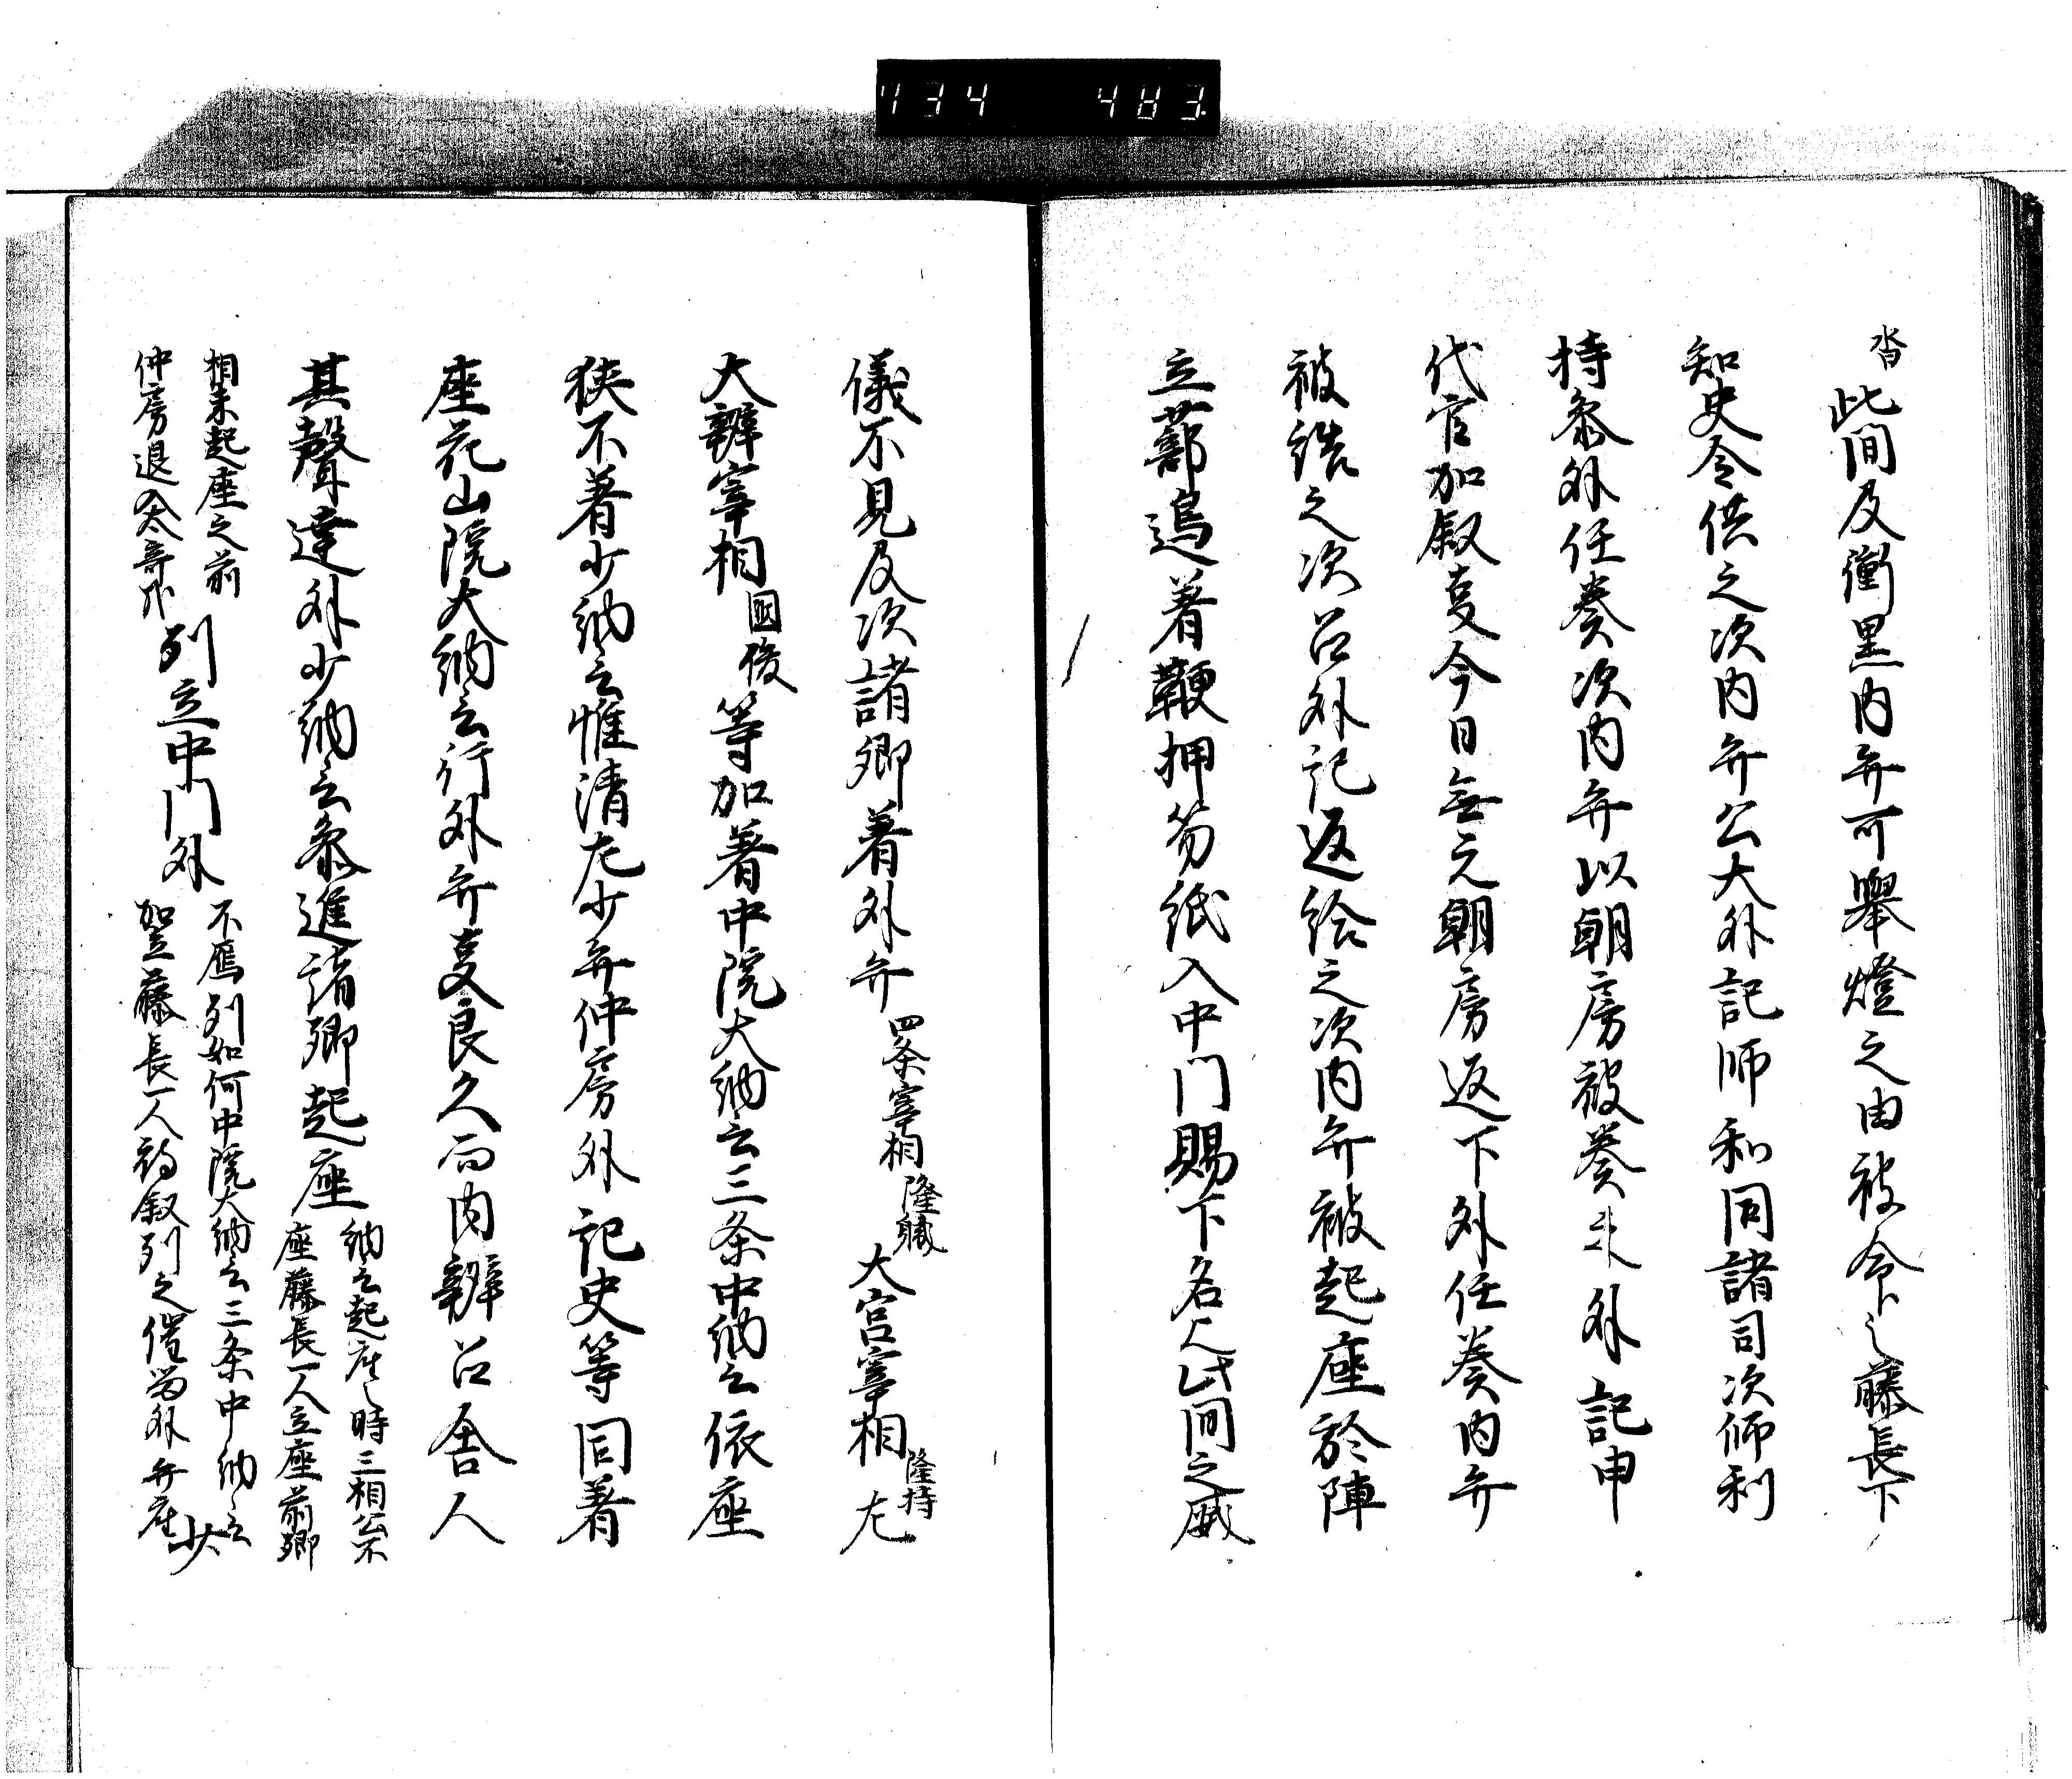 沓此間及衝黒内弁可舉燈之由被命之藤長下
知史令供之次内弁公大外記師和同諸司次師利
持参外任奏次内弁以朝房被奏来外記申
代官加叙事今日無元朝房返下外任奏内弁
被誥之次召外記返給之次内弁被起座於陣
立蔀邊着鞾押笏紙入中門賜下名此間之
儀不見及次諸卿著外弁四条宰相隆職大宮宰相隆持左
大辨宰相国俊等加著中院大納言三条中納言依座
狭不著少納言惟清左少弁仲房外記史等同著
座花山院大納言行外弁事良久而内辨召舎人
其聲達外少納言参進諸卿起座納言起座之時三相公不
座藤長一人立座前卿
相未起座之前
仲房退入太奇列立中門外不鴈列如何中院大納言三条中納言
賀立藤長一人称叙列之催留外弁座